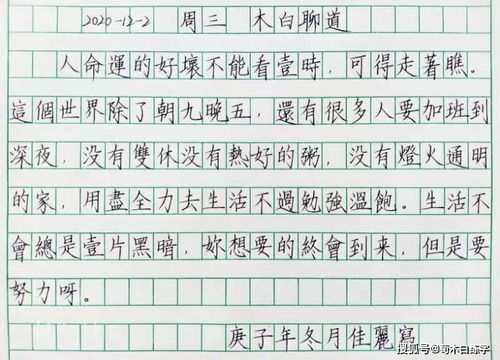 2020-12-2 周三 木白聊道
人命運的好壞不能看壹時，可得走著瞧。
這個世界除了朝九晚五，還有很多人要加班到
深夜，没有雙休没有熱好的粥，没有燈火通明
的家，用盡全力去生活不過勉強溫飽。生活不
會總是壹片黑暗，妳想要的終會到来，但是要
努力呀。
庚子年冬月佳麗寫
搜狐号@荀木白练字